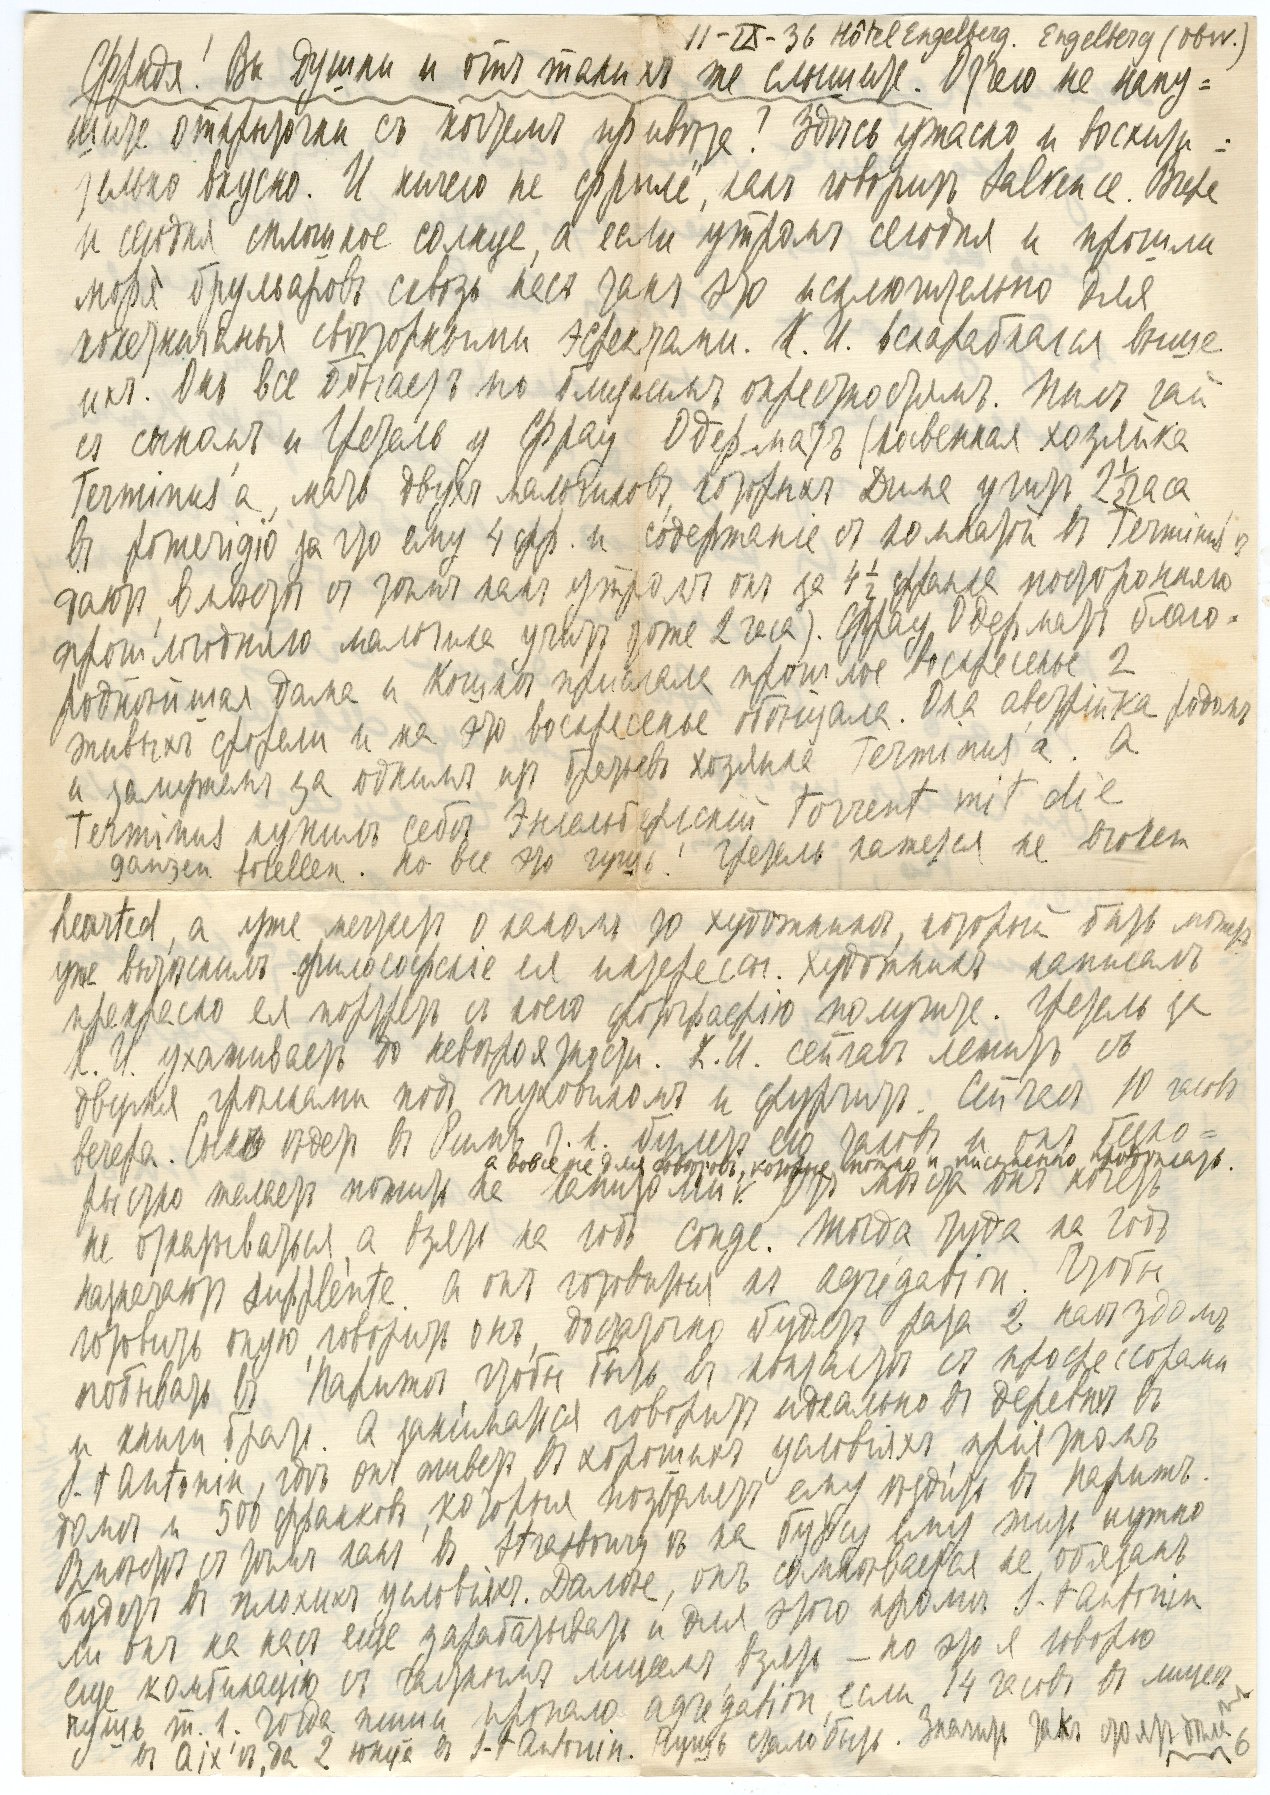 11-IX-36 Hôtel Engelberg. Engelberg (Obw.)
Фридя! Вы душки и отъ такихъ же слышите. Отчего не напу=
шите открыточки съ костемъ привета! Здѣсь ужасно и восхити-
тельно вкусно. И ничего не фрилё, какъ говоритъ Salvence. Вчера
и сегодня сплошное солнце, а если утромъ сегодня и прошли
моря брульаровъ сквозь насъ такъ это исключительно для
кокетничанья свѣторными эфектами. К. И. вскарабкался выше
ихъ. Онъ все бѣгаетъ по ближнимъ окрестностямъ. Пилъ чай
съ сыномъ и Гретель у Фрау Одерматъ (косвенная хозяйка
Terminus'а, мать двухъ мальчиковъ, которыхъ Дима учитъ 2½ часа
въ pomerigio за что ему 4 фр. и содержаніе съ комнатой въ Terminus'ѣ
даютъ, вмѣстѣ съ тѣмъ какъ утромъ онъ за 4½ франка посторонняго
прошлогодняго мальчика учитъ тоже 2 часа). Фрау Одерматъ благо-
роднѣйшая дама и Кошкѣ прислала прошлое воскресенье 2
живыхъ форели и на это воскресенье обѣщала. Она австрійка родомъ
и замужемъ за однимъ изъ братьевъ хозяина Terminus'а. А
Terminus купилъ себѣ Энгельбергскій torrent mit die
ganzen forellen. Но все это чушь! Гретель кажется не broken
hearted, а уже мечтаетъ о какомъ то художникѣ, который быть можетъ
уже вытѣснилъ философскіе ея интересы. Художникъ написалъ
прекрасно ея портретъ съ коего фотографію получите. Гретель за
К. И. ухаживаетъ до невѣроятности. К. И. сейчасъ лежитъ съ
двумя грѣлками подъ пуховикомъ и фурчитъ. Сейчасъ 10 часовъ
вечера. Сынъ ѣдетъ въ Римъ т. к. билетъ его таковъ и онъ беско=
а вовсе не для совѣтовъ, которые можно и письменно прописать.
рыстно желаетъ пожить на капитолии. Отъ мѣста онъ хочетъ
не отказываться, а взять на годъ congé. Тогда туда на годъ
назначаютъ suppléante. А онъ готовится къ agrégation. Чтобы
готовить оную, говоритъ онъ, достаточно будетъ раза 2 наѣздомъ
побывать въ Парижѣ чтобы быть въ контактѣ съ профессорами
и книги брать. А заниматься говоритъ идеально въ деревнѣ въ
S-t Antonin, гдѣ онъ живетъ въ хорошихъ условіяхъ, пріятномъ
домѣ и 500 франковъ, которыя позволяетъ ему ѣздить въ Парижъ.
Вмѣстѣ съ тѣмъ какъ въ Strasbourg'ѣ на бурсу ему жить нужно
будетъ въ плохихъ условіяхъ. Далѣе, онъ сомнѣвается не обязанъ
ли онъ на насъ еще зарабатывать и для этого кромѣ S-t Antonin
еще комбинацію съ частнымъ лицеемъ взять — но это я говорю
чушь т. к. тогда пиши пропало agrégation, если 14 часовъ въ лицеѣ
въ Aix'ѣ, да 2 юнца въ S-t Antonin. Чушь стало быть. Значитъ такъ